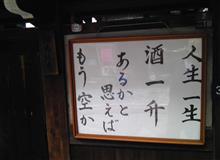 人生一生
酒一升
あるかと
思えば
もう空か